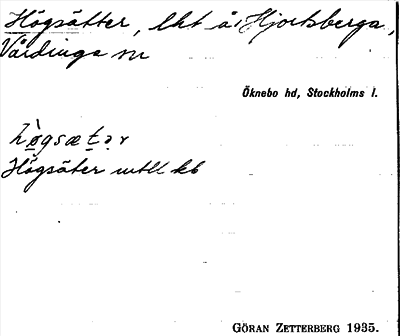 Högsätter, lht å Hjortsberga,
Vårdinge sn
Öknebo hd, Stockholms l.
hø̀gsætər
Högsäter mtll kb
GÖRAN ZETTERBERG 1935.